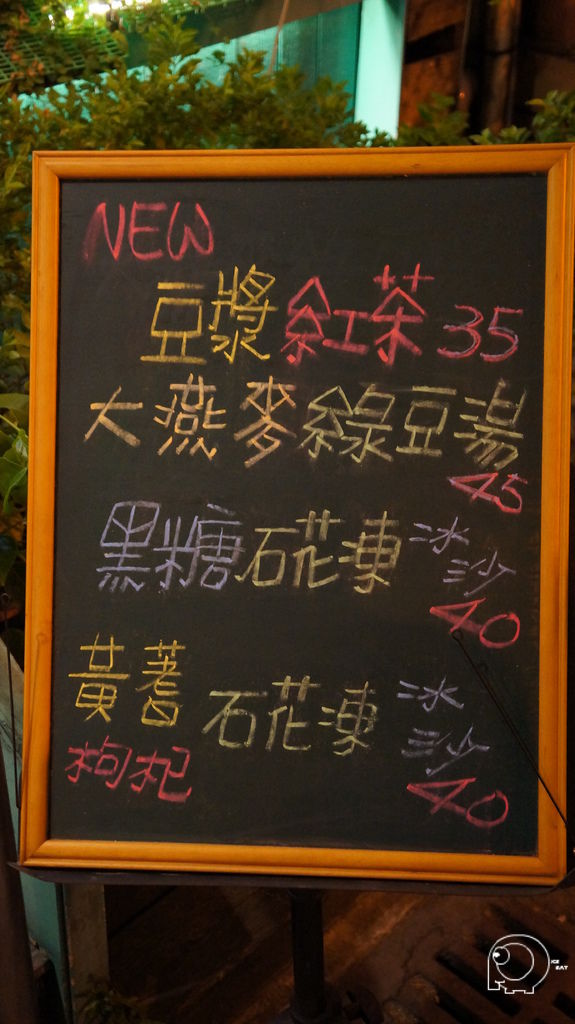 NEW
豆漿紅茶 35
大燕麥綠豆湯
45
黑糖石花凍冰沙
40
黃蓍枸杞石花凍冰沙
40
ICE
BAY